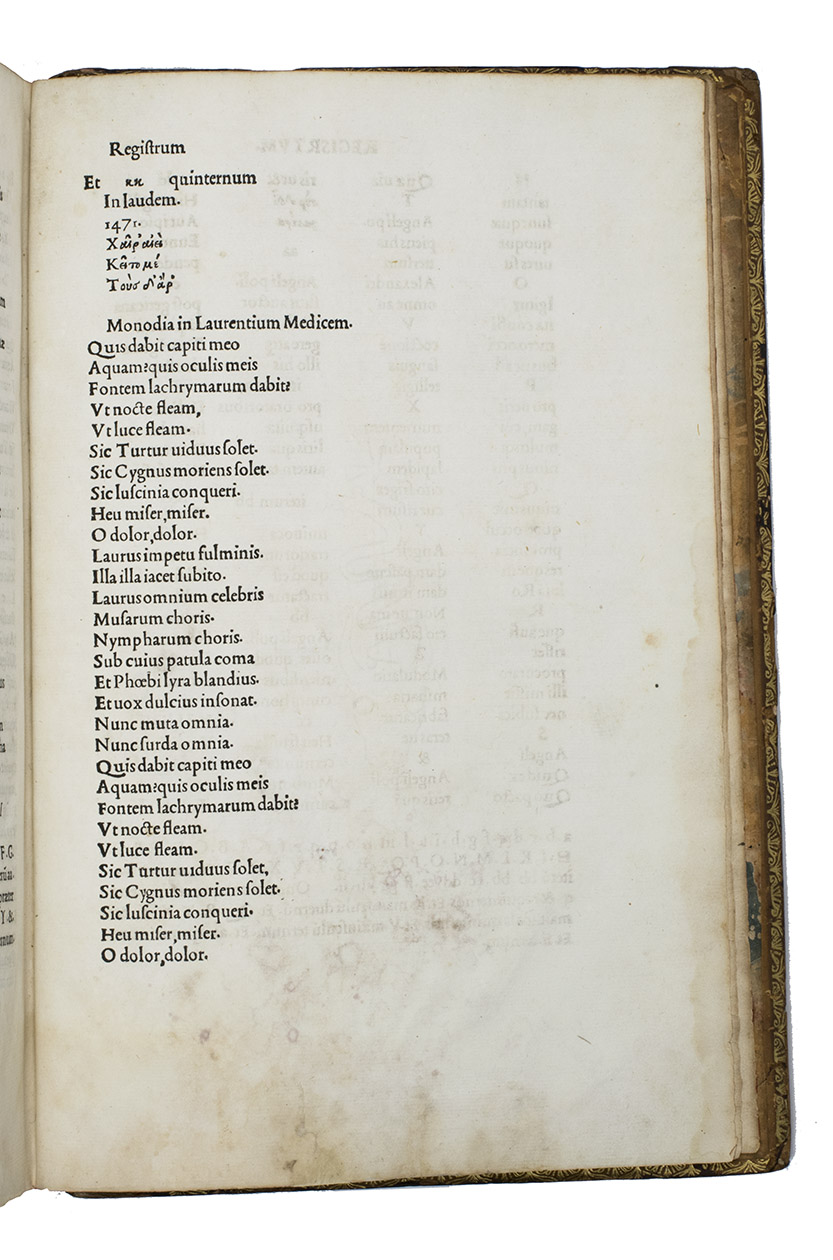 Regiſtrum
Et κκ quinternum
In laudem.
1471.
Χαῖρ' αἰεὶ
Κεῖτο μέ
Τοὺσ δ' ἄρ'
Monodia in Laurentium Medicem.
Quis dabit capiti meo
Aquam?quis oculis meis
Fontem lachrymarum dabit?
Vt nocte fleam,
Vt luce fleam.
Sic Turtur uiduus ſolet.
Sic Cygnus moriens ſolet.
Sic luſcinia conqueri.
Heu miſer,miſer.
O dolor,dolor.
Laurus impetu fulminis.
Illa illa iacet ſubito.
Laurus omnium celebris
Muſarum choris.
Nympharum choris.
Sub cuius patula coma
Et Phœbi lyra blandius.
Et uox dulcius inſonat.
Nunc muta omnia.
Nunc ſurda omnia.
Quis dabit capiti meo
Aquam?quis oculis meis
Fontem lachrymarum dabit?
Vt nocte fleam.
Vt luce fleam.
Sic Turtur uiduus ſolet,
Sic Cygnus moriens ſolet.
Sic luſcinia conqueri.
Heu miſer,miſer.
O dolor,dolor.